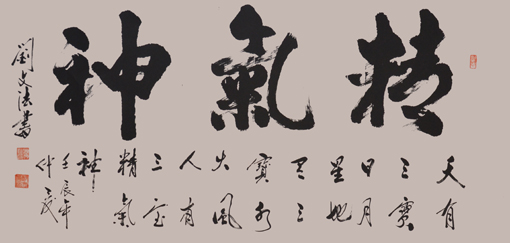 精氣神
天有
三寶
日月
星地
有三
寶水
火風
人有
三宝
精氣
神
壬辰年
仲
劉文法書